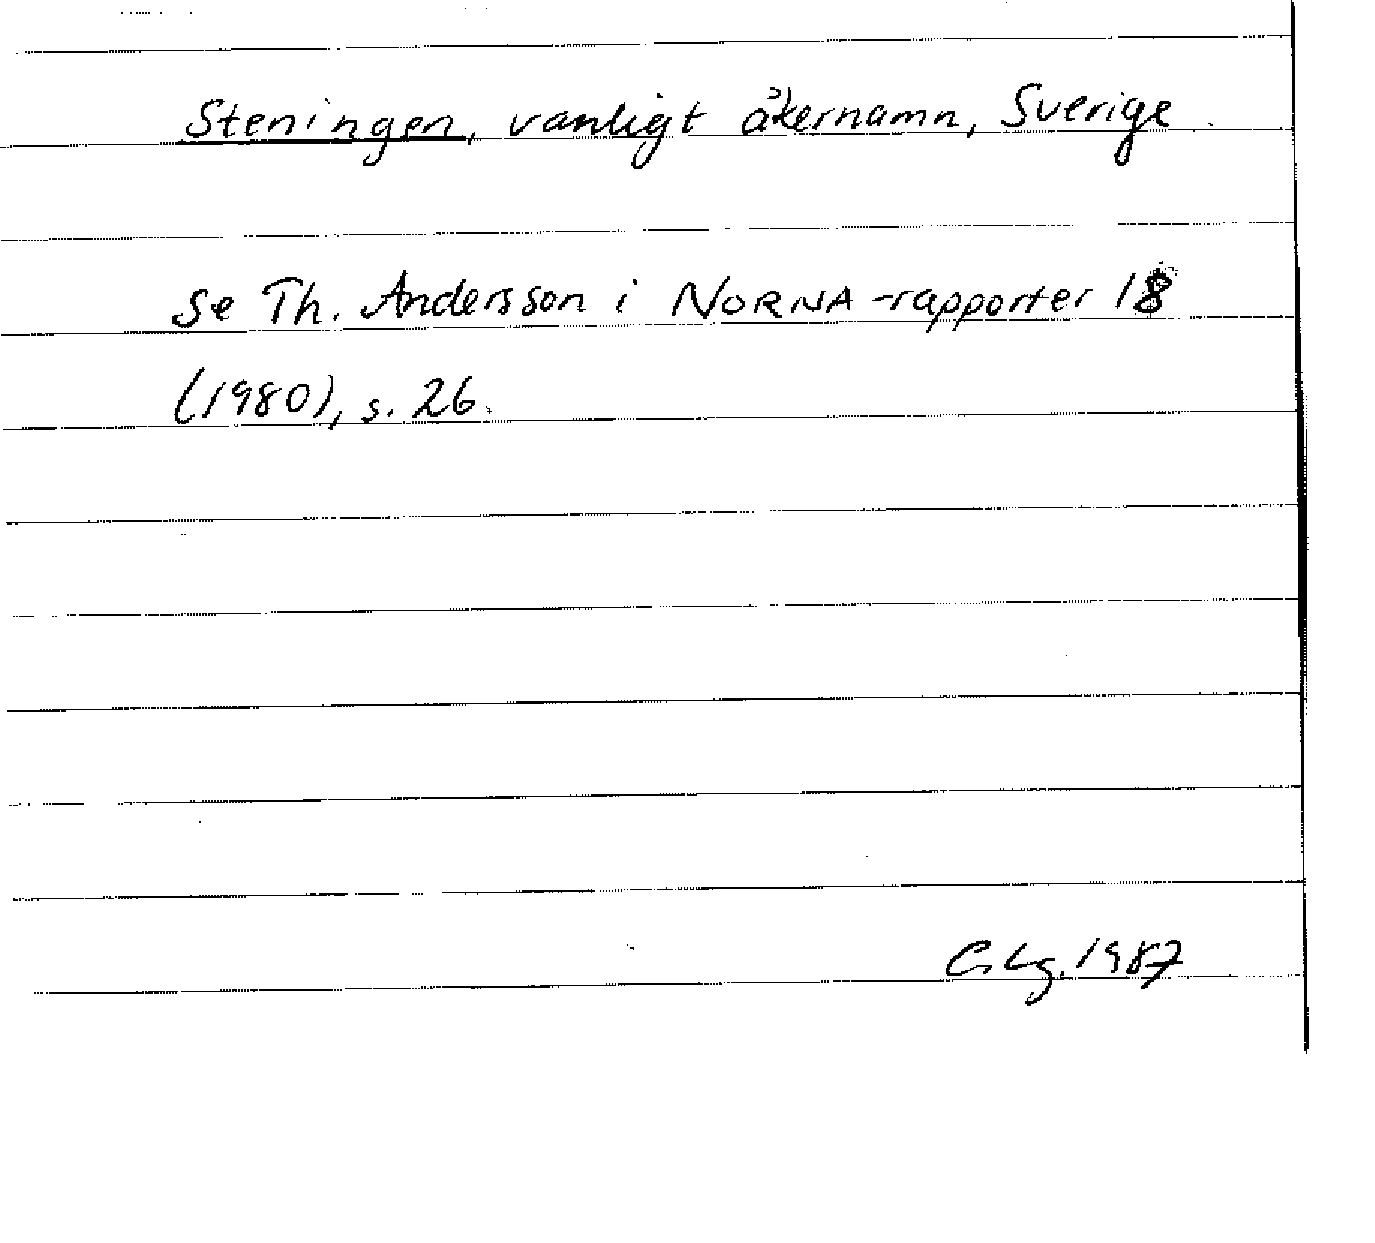 Steningen, vanligt åkernamn, Sverige
se Th. Andersson i NORNA-rapporter 18
(1980), s. 26.
1987